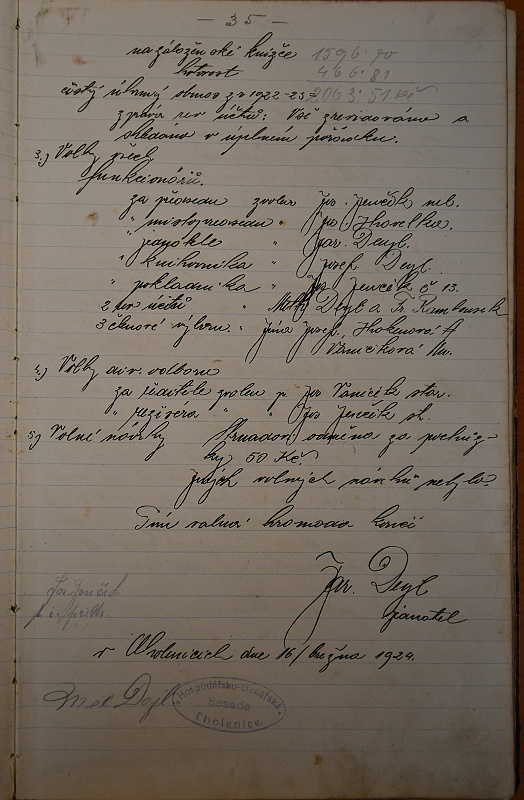 — 35 —
na záloženské knížce 1596·70
hotovost 466·81
čistý úhrnný obnos za 1922-23 = 2063·51 Kč
zpráva rev. účtů: Vše zrevidováno a
shledáno v úplném pořádku.
3.) Volby všech
funkcionářů.
za předsedu zvolen Jos. Jenčík ml.
" místopředsedu " Jos. Havelka.
" jednatele " Jar. Deyl.
" knihovníka " Josef Deyl.
" pokladníka " Jos Jenčík č 13.
2 rev. účtů " Deyl a Fr. Kambousek
3 členové výboru " Jína Josef, A
Vaníčková
4.) Volby div. odboru
za ředitele zvolen p. Jos Vaníček star.
" režisera " " Jos Jenčík st.
5.) Volné návrhy odměna za pochůz-
ky 50 Kč.
Jiných volných návrhů nebylo.
Tím valná hromada končí
Jar. Deyl
jednatel
Jos Jenčík
v Cholenicích dne 16/ března 1924.
Deyl
Hospodářsko-čtenářská
beseda
Cholenice.